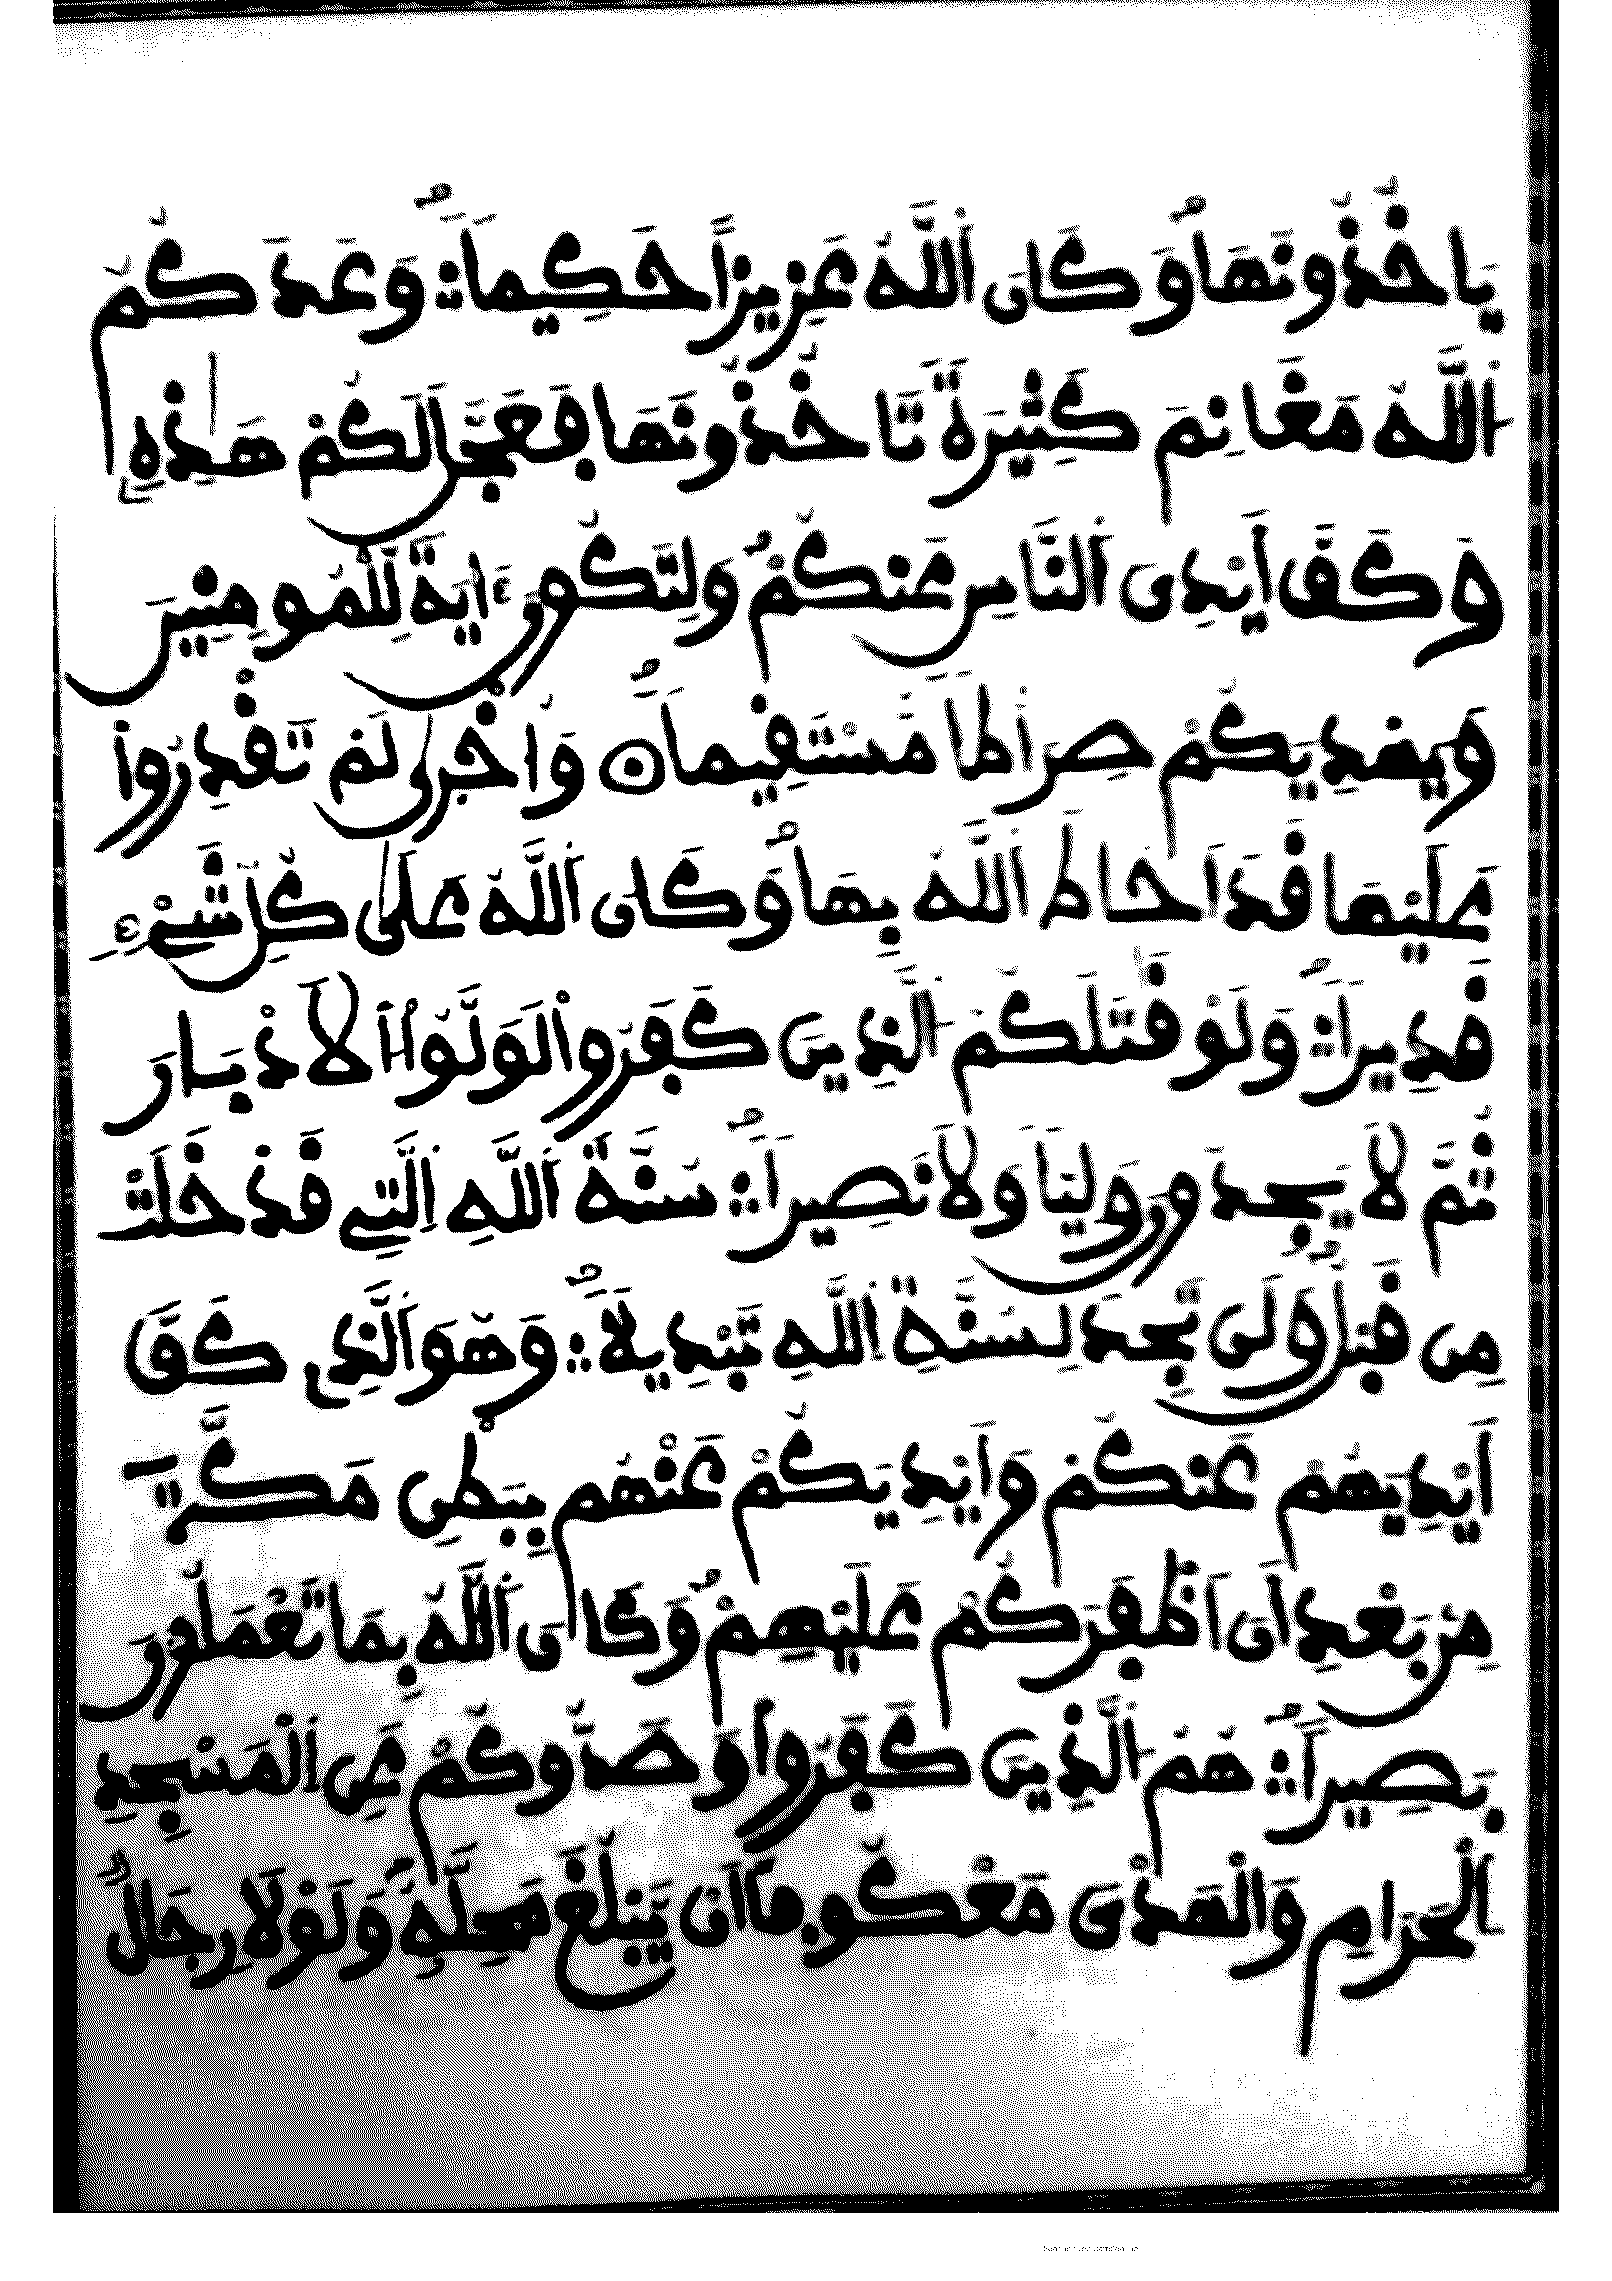 يَاخُذُونَهَا وَكَانَ ٱللَّهُ عَزِيزاً حَكِيماً وَعَدَكُمُ
ٱللَّهُ مَغَانِمَ كَثِيرَةً تَاخُذُونَهَا فَعَجَّلَ لَكُمْ هَٰذِهِۦ
وَكَفَّ أَيْدِىَ ٱلنَّاسِ عَنكُمْ وَلِتَكُونَ ءَايَةً لِّلْمُومِنِينَ
وَيَهْدِيَكُمْ صِرَٰطاً مُّسْتَقِيماً وَأُخْرَىٰ لَمْ تَقْدِرُواْ
عَلَيْهَا قَدَ اَحَاطَ ٱللَّهُ بِهَا وَكَانَ ٱللَّهُ عَلَىٰ كُلِّ شَىْءٍ
قَدِيراً وَلَوْ قَٰتَلَكُمُ ٱلذِينَ كَفَرُواْ لَوَلَّوُاْ اُلَادْبَٰرَ
ثُمَّ لَا يَجِدُونَ وَلِيّاً وَلَا نَصِيراً سُنَّةَ ٱللَّهِ ٱلتِے قَدْ خَلَتْ
مِن قَبْلُ وَلَن تَجِدَ لِسُنَّةِ ٱللَّهِ تَبْدِيلًا وَهُوَ ٱلَّذِے كَفَّ
أَيْدِيَهُمْ عَنكُمْ وَأَيْدِيَكُمْ عَنْهُم بِبَطْنِ مَكَّةَ
مِنۢ بَعْدِ أَنَ اَظْفَرَكُمْ عَلَيْهِمْ وَكَانَ ٱللَّهُ بِمَا تَعْمَلُونَ
بَصِيراً هُمُ ٱلَّذِينَ كَفَرُواْ وَصَدُّوكُمْ عَنِ ٱلْمَسْجِدِ
ٱلْحَرَامِ وَالْهَدْىَ مَعْكُوفاً اَنْ يَّبْلُغَ مَحِلَّهُۥ وَلَوْلَا رِجَالٌ